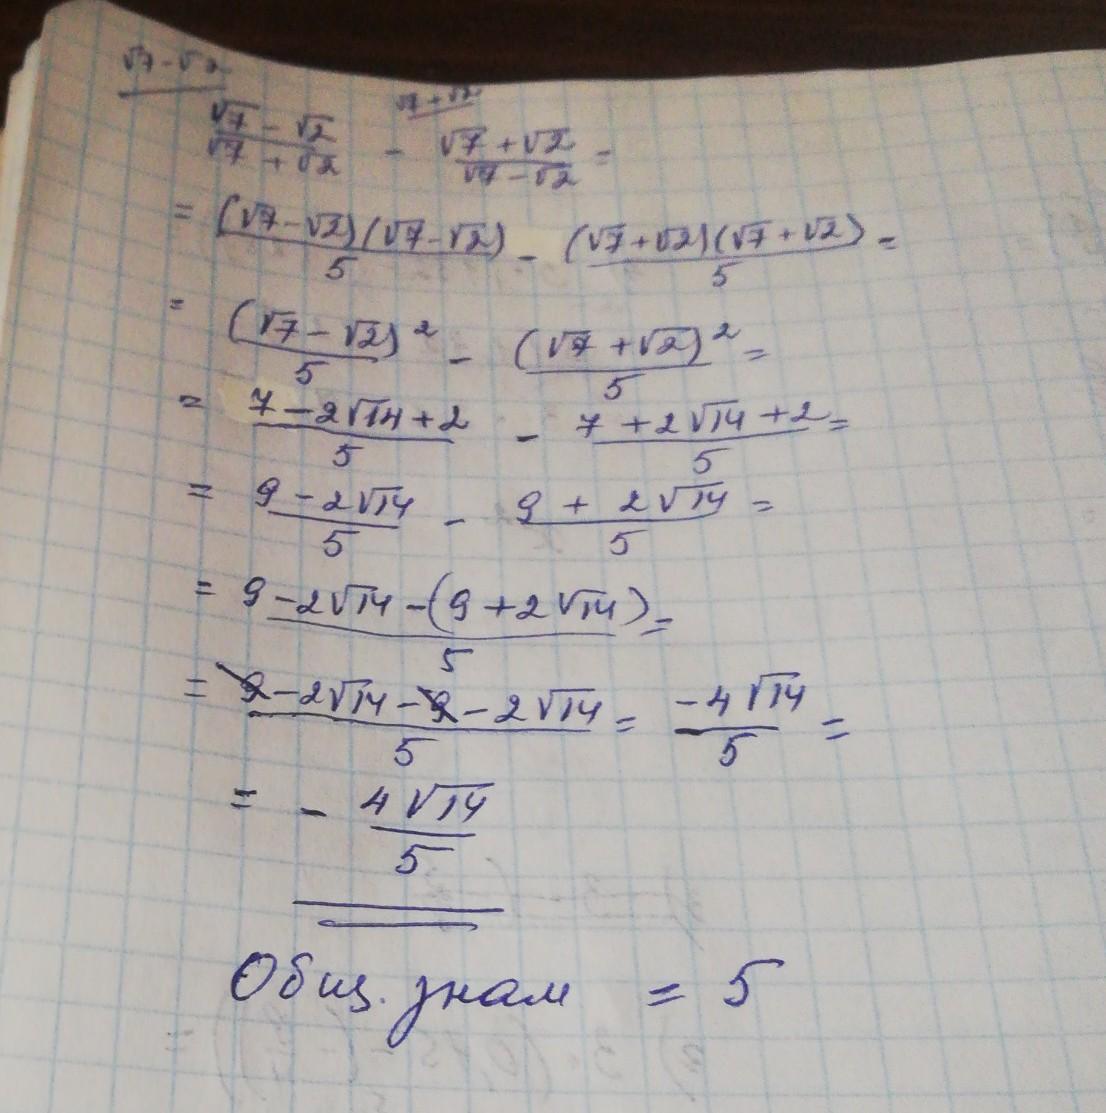 √7-√2
√7+√2
(√7-√2)/(√7+√2) - (√7+√2)/(√7-√2) =
= (√7-√2)(√7-√2)/5 - (√7+√2)(√7+√2)/5 =
= (√7-√2)²/5 - (√7+√2)²/5 =
= 7-2√14+2/5 - 7+2√14+2/5 =
= 9-2√14/5 - 9+2√14/5 =
= 9-2√14-(9+2√14)/5 =
= 9-2√14-9-2√14/5 = -4√14/5 =
= - 4√14/5
Общ. знам = 5